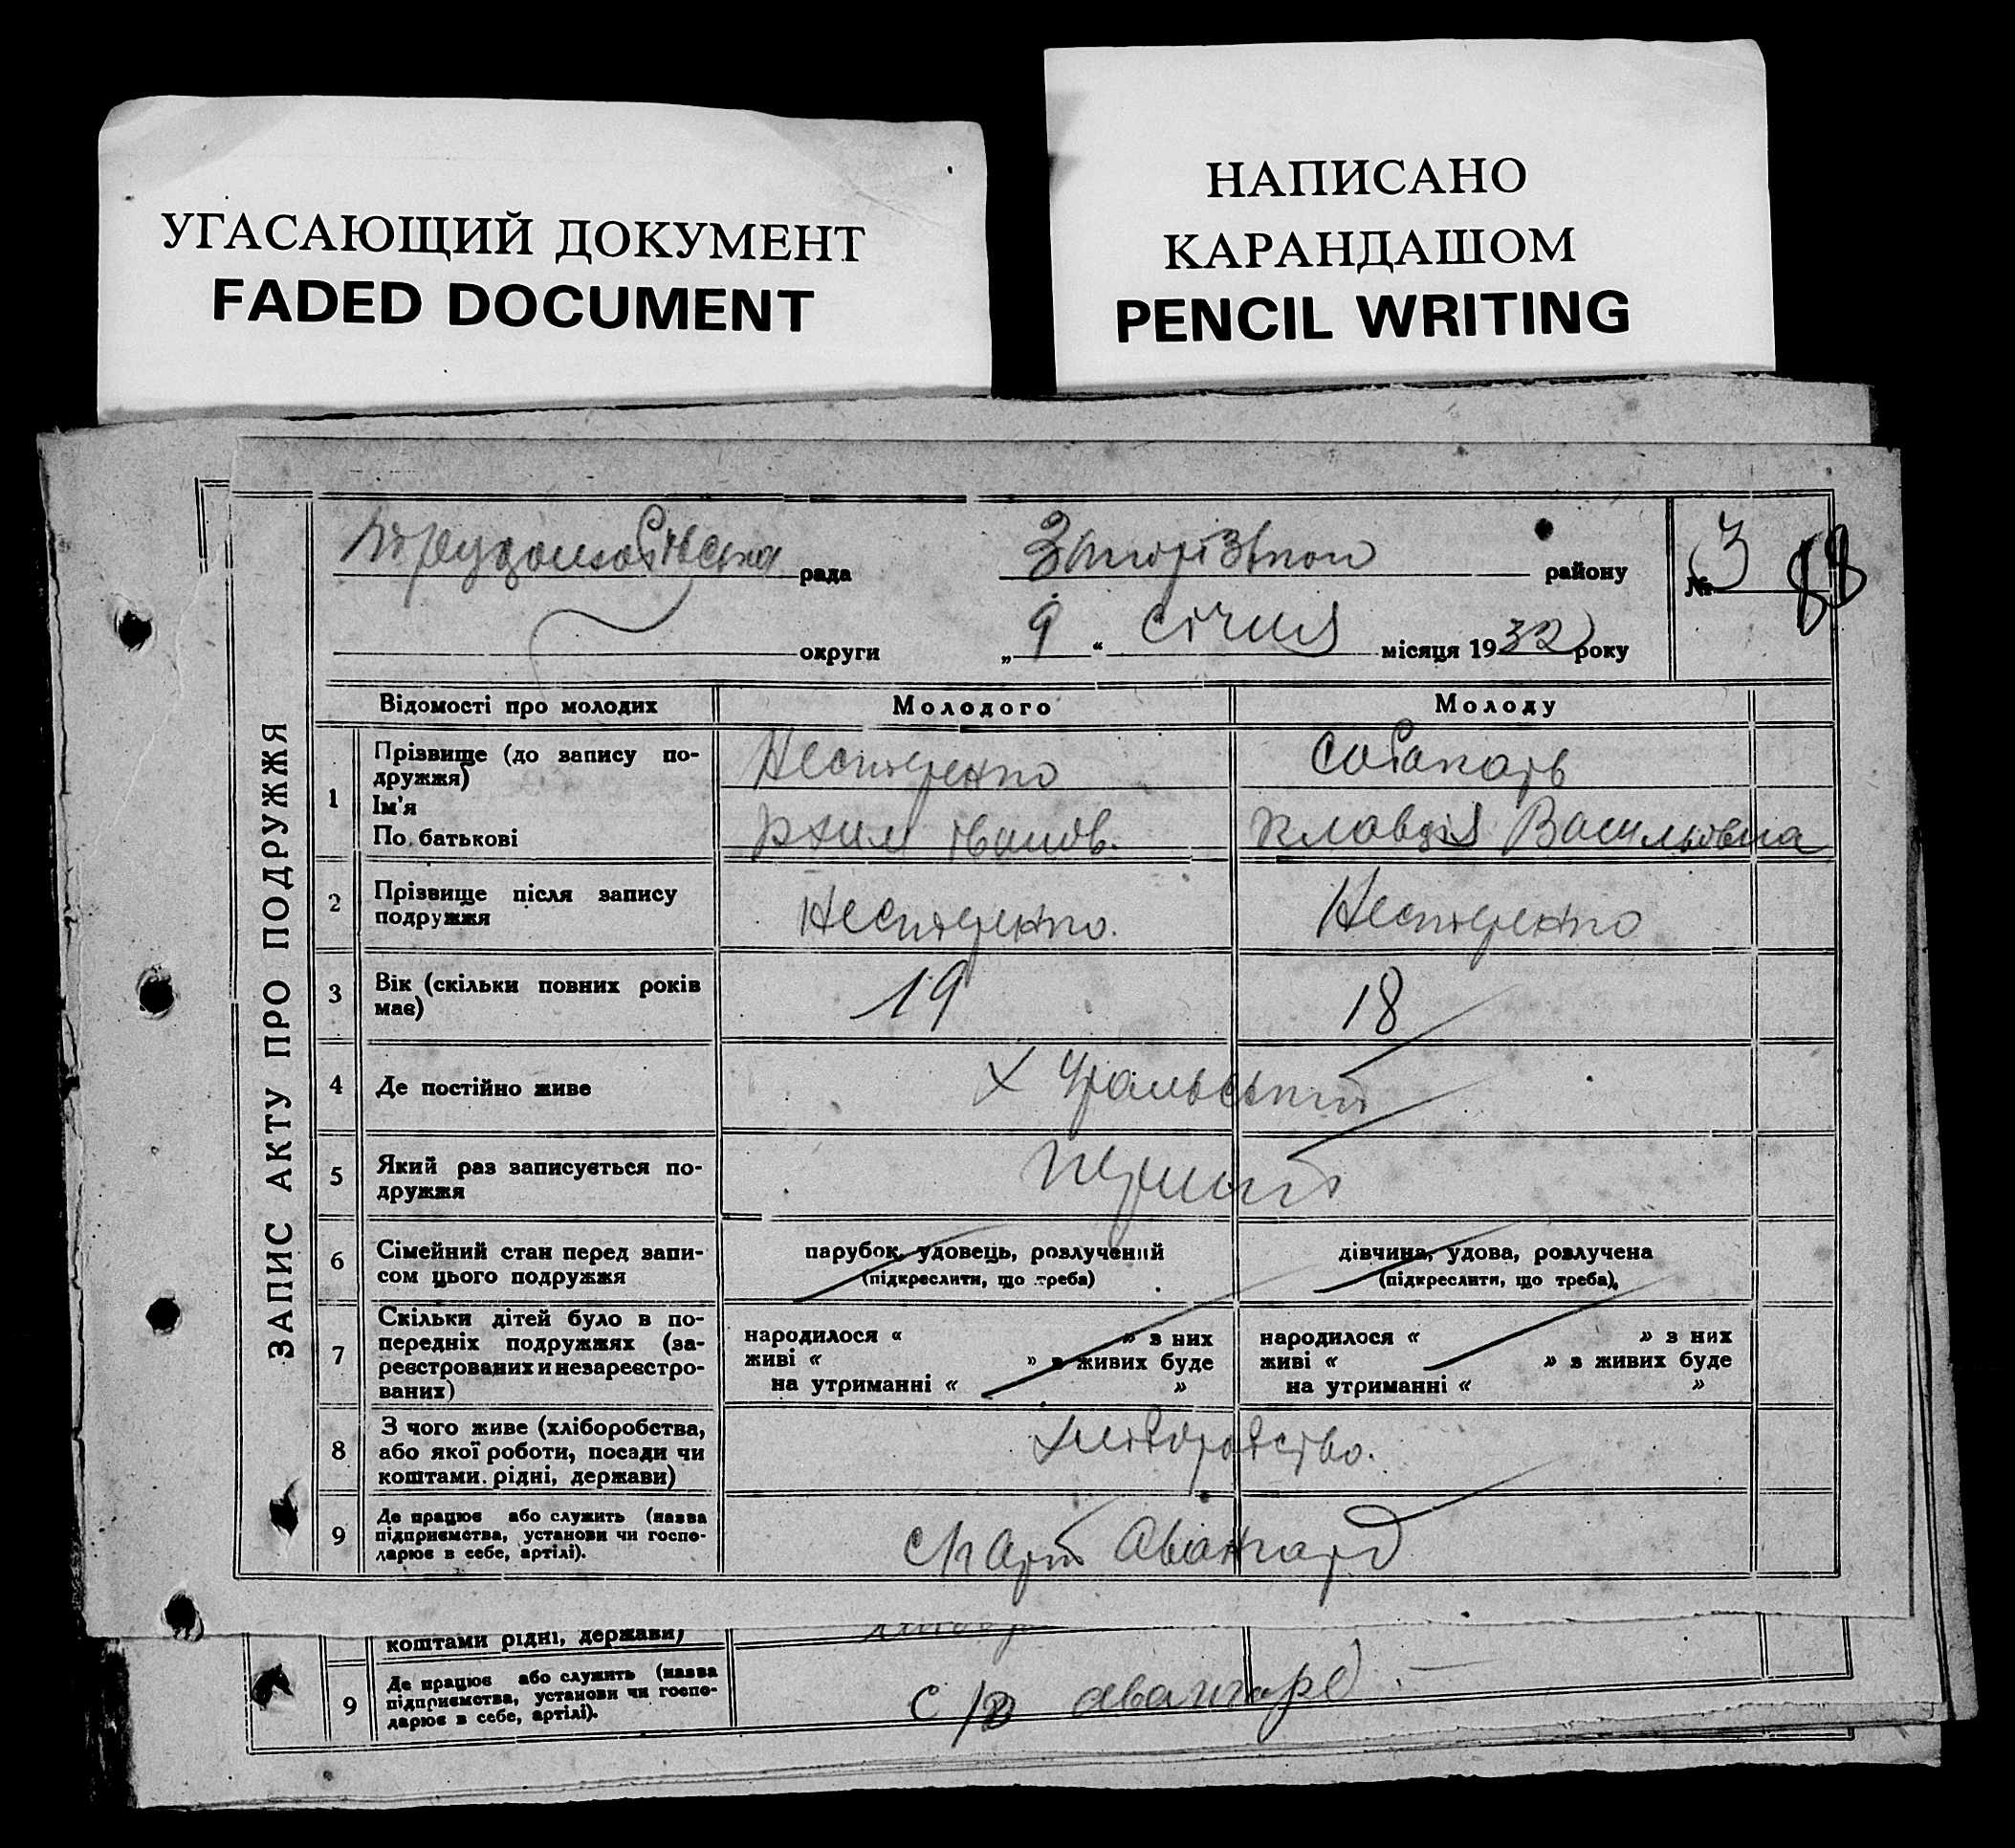 УГАСАЮЩИЙ ДОКУМЕНТ
FADED DOCUMENT
НАПИСАНО
КАРАНДАШОМ
PENCIL WRITING
ЗАПИС АКТУ ПРО ПОДРУЖЖЯ
рада
району
№ 3
88
округи
„ 9 “ січня місяця 1932 року
Відомості про молодих Молодого Молоду
1
Прізвище (до запису по-
дружжя)
Нестеренко
Ім'я
По батькові
Іванов. Клавдія Васильовна
2
Прізвище після запису
подружжя
Нестеренко. Нестеренко
3
Вік (скільки повних років
має)
19 18
4
Де постійно живе
х Уральский
5
Який раз записується по-
дружжя
перший
6
Сімейний стан перед запи-
сом цього подружжя
парубок, удовець, розлучений
(підкреслити, що треба)
дівчина, удова, розлучена
(підкреслити, що треба)
7
Скільки дітей було в по-
передніх подружжях (за-
реєстрованих и незареєстро-
ваних)
народилося « » з них
живі « » з живих буде
на утриманні « »
народилося « » з них
живі « » з живих буде
на утриманні « »
8
З чого живе (хліборобства,
або якої роботи, посади чи
коштами рідні, держави)
хліборобство.
9
Де працює або служить (назва
підприємства, установи чи госпо-
дарює в себе, артілі).
Авангард
коштами рідні, держави)
9
Де працює або служить (назва
підприємства, установи чи госпо-
дарює в себе, артілі).
авангард